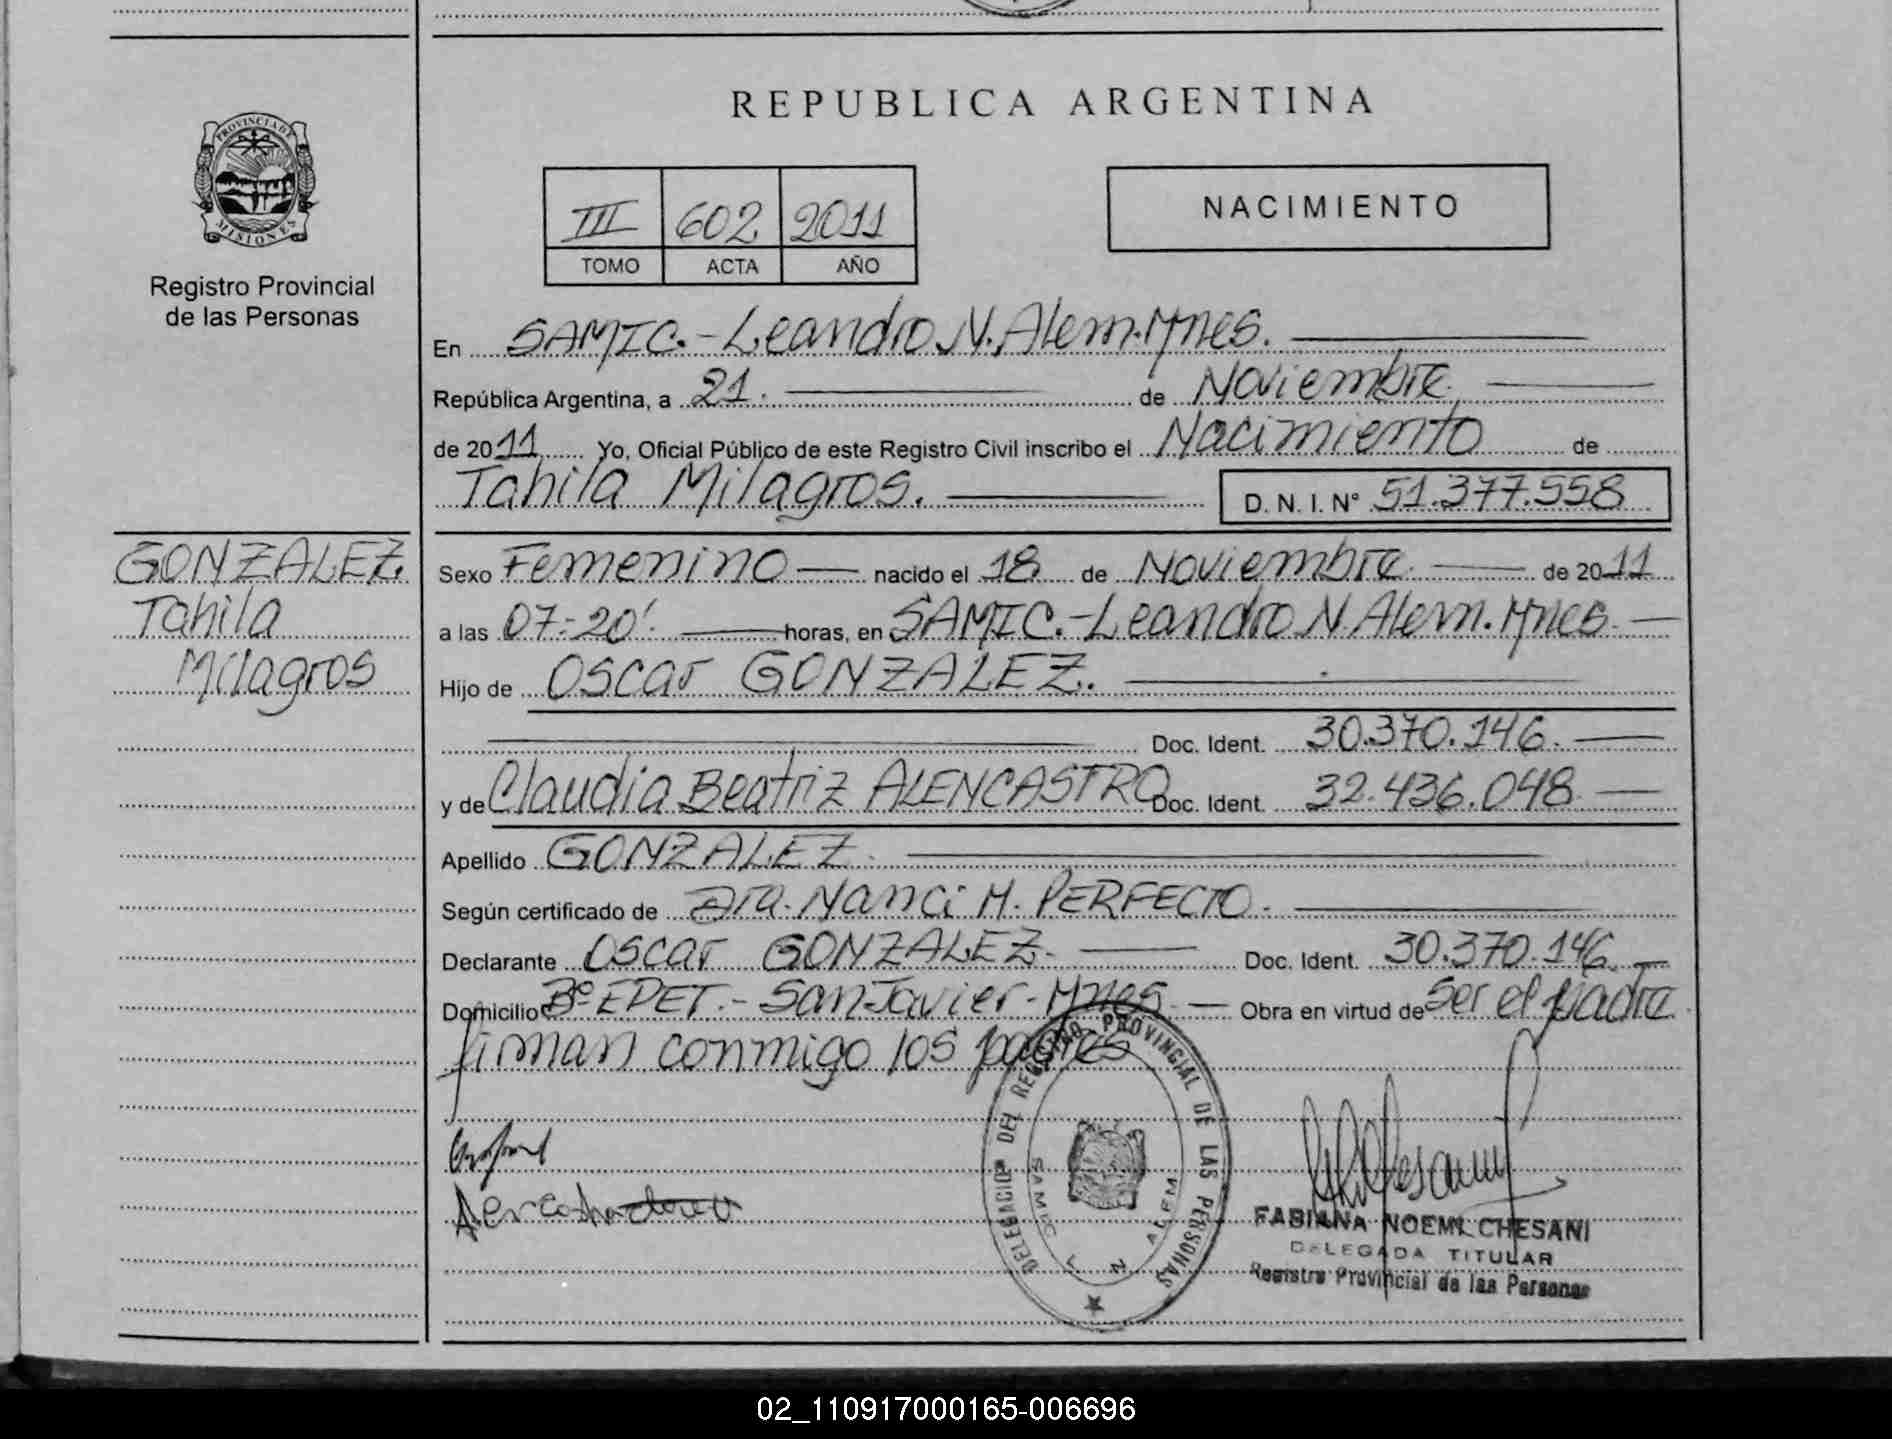 REPUBLICA ARGENTINA
PROVINCIA DE MISIONES
Registro Provincial
de las Personas
III 602 2011
TOMO ACTA AÑO
NACIMIENTO
En SAMIC.-Leandro N. Alem. Mnes.
República Argentina, a 21. de Noviembre.
de 2011 Yo, Oficial Público de este Registro Civil inscribo el Nacimiento de
Tahila Milagros. D. N. I. N° 51.377.558
GONZALEZ.
Tahila
Milagros
Sexo Femenino nacido el 18 de Noviembre de 2011
a las 07-20'. horas, en SAMIC.-Leandro N. Alem. Mnes.
Hijo de Oscar GONZALEZ.
Doc. Ident. 30.370.146.
y de Claudia Beatriz ALENCASTRO Doc. Ident. 32.436.048
Apellido GONZALEZ.
Según certificado de Dra. Nanci M. PERFECTO.
Declarante Oscar GONZALEZ. Doc. Ident. 30.370.146.
Domicilio B° EPET.- San Javier - Mnes. Obra en virtud de Ser el padre
firman conmigo los padres
DELEGACION DEL REGISTRO PROVINCIAL DE LAS PERSONAS
SAMIC L N ALEM
FABIANA NOEMI CHESANI
DELEGADA TITULAR
Registro Provincial de las Personas
02_110917000165-006696